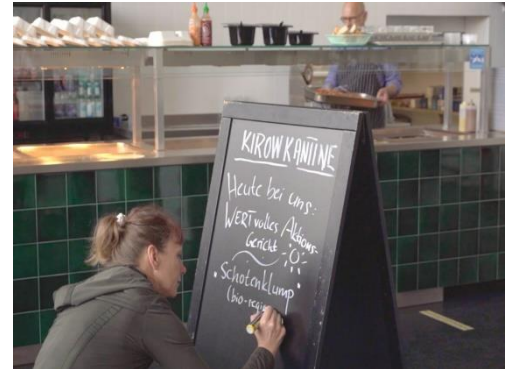 KIROW KANTINE
Heute bei uns:
WERTvolles Aktions-
Gericht
Schotenklump
(bio-regio